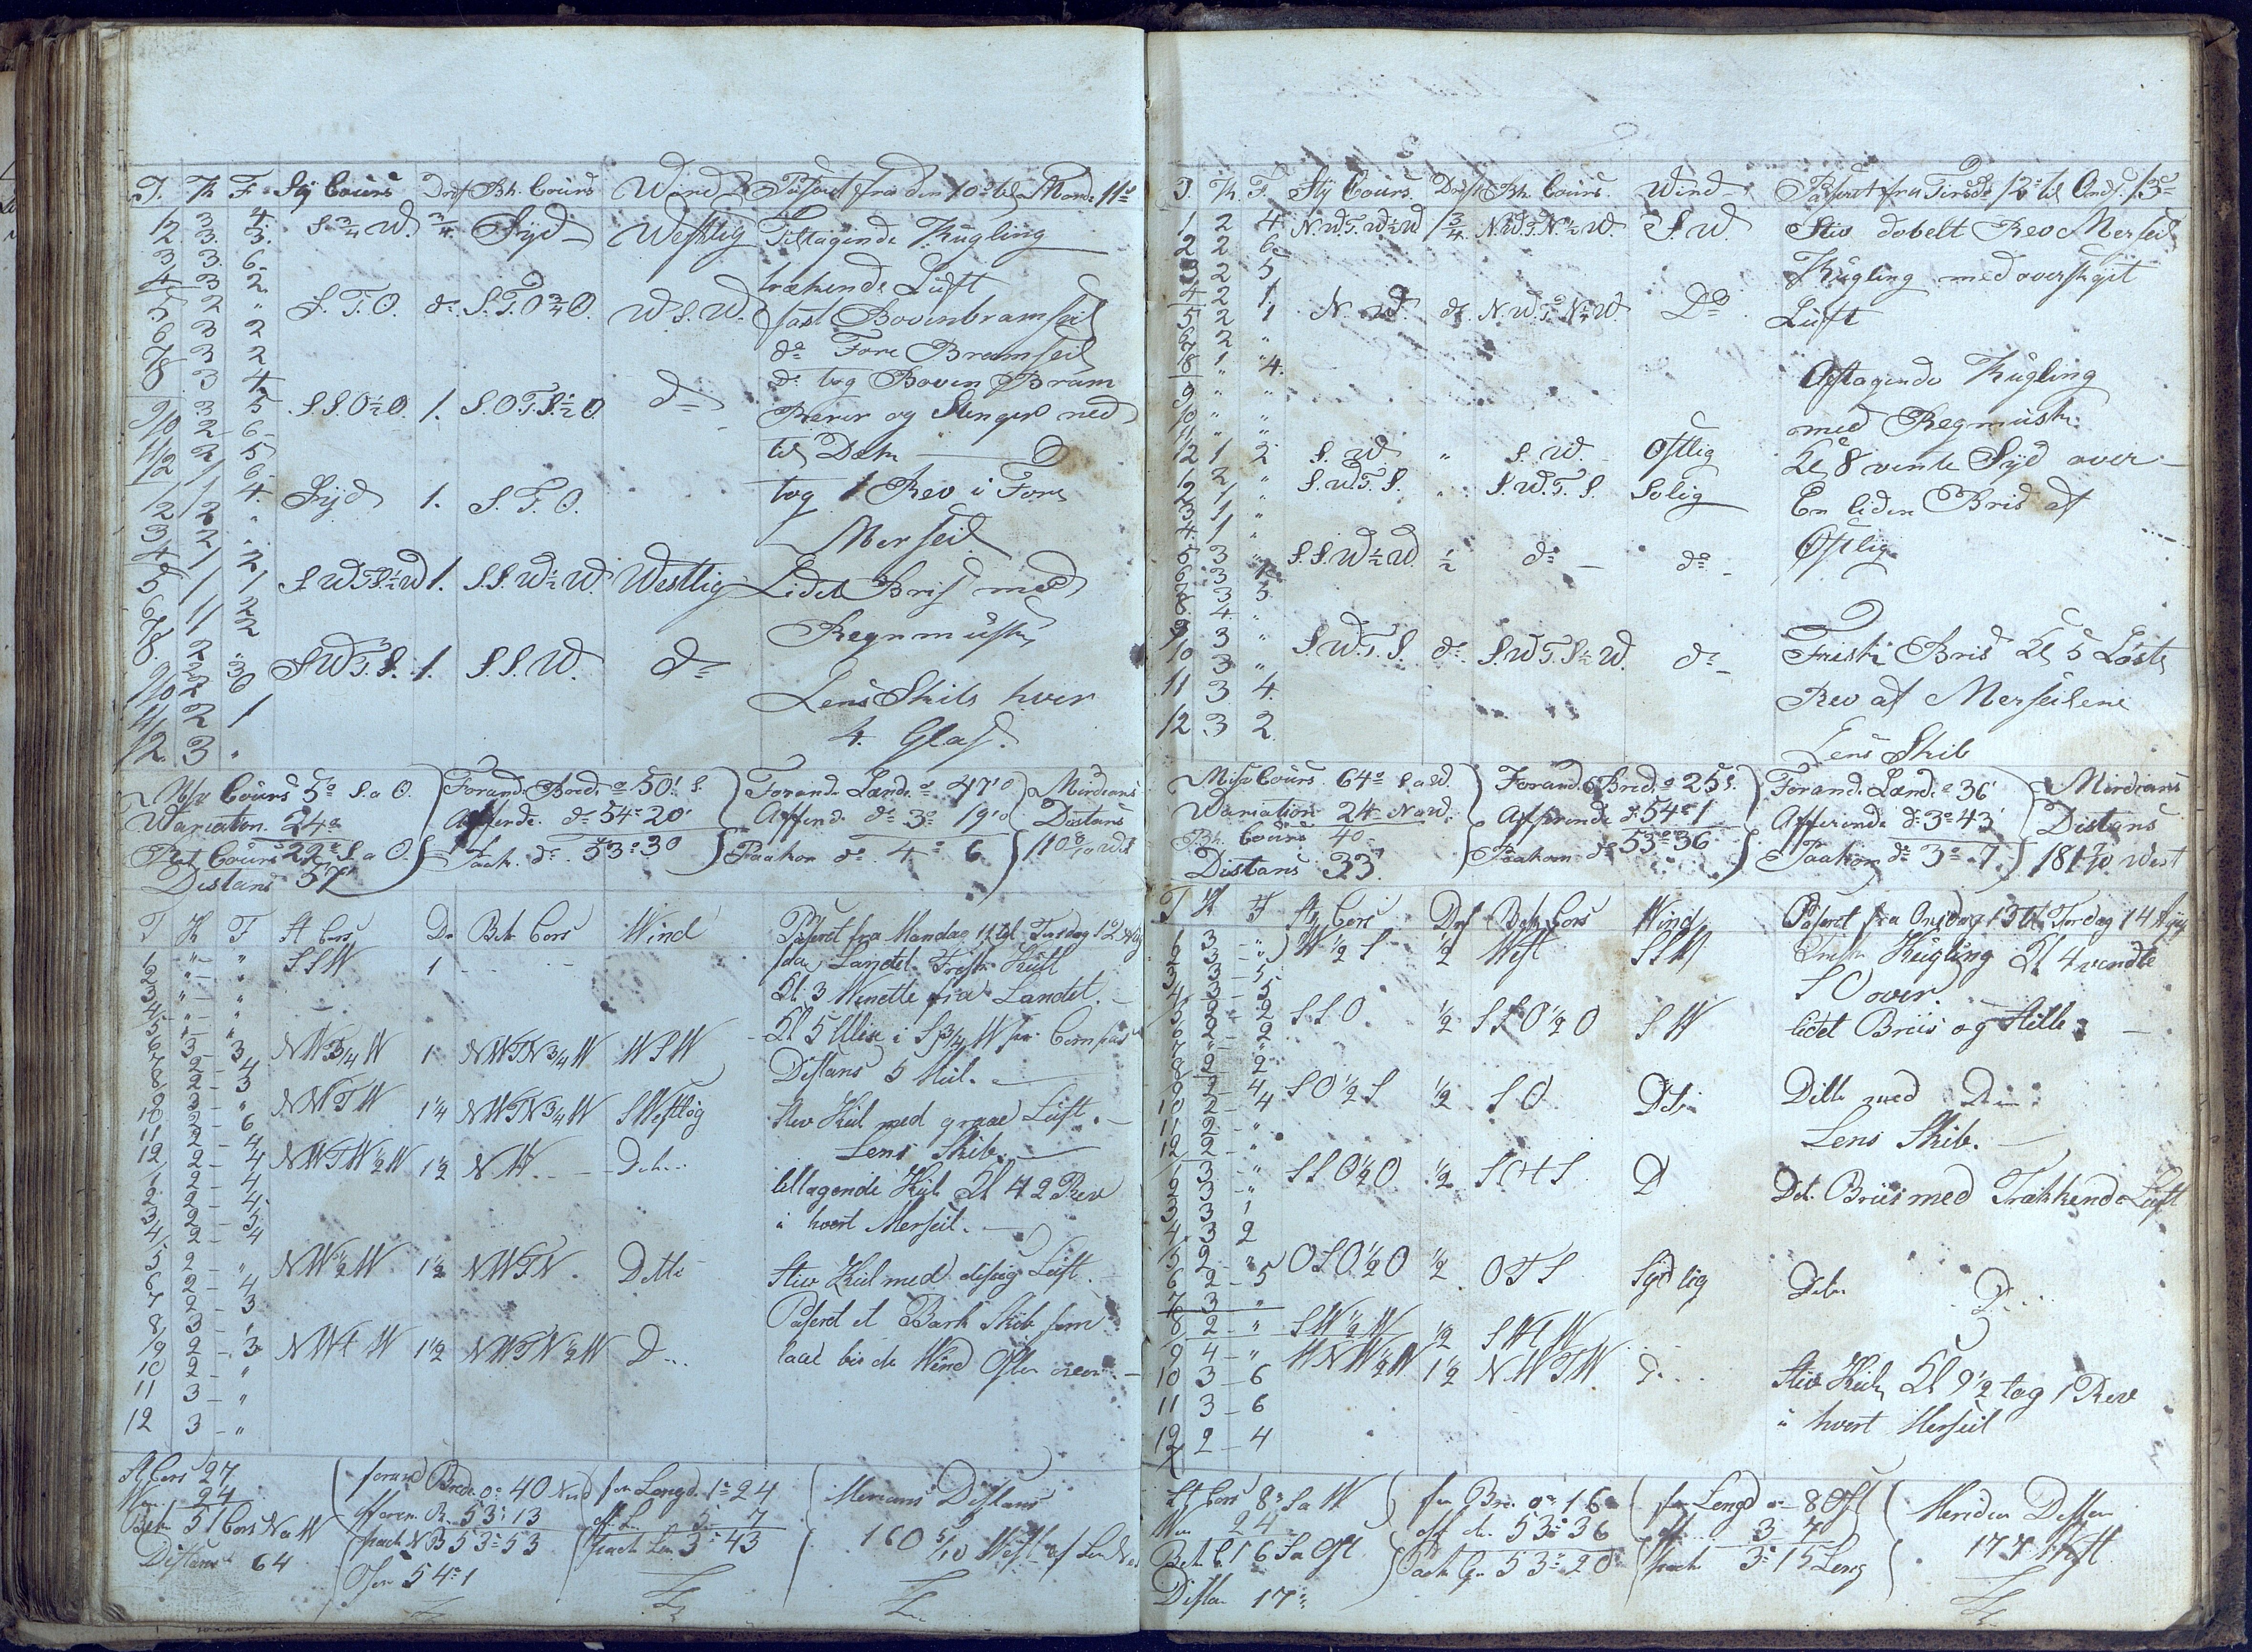 T. K. F. Sty Cours Drift Bh. Cours Wind Passeret fra den 10de til Mand. 11te
12 3 4 S. 3/4 W. 3/4 Syd Westlig Tiltagende Kugling
3 6
4 3 2 trækende Luft
5 2 " S. T. O. do. S. T. O 3/4 O. W. S. W. fast Bovenbramseil
6 3 2
7 3 2 do Fore Bramseil
8 3 4 do. tog Boven Bram
9 3 5 S. S. O 1/2 O. 1. S. O. T. S 1/2 O. do Rærer og Stenger ned
10 2 6
11 2 5 til Dæk
12 1 6
1 1 4 Syd 1. S. T. O. tog 1 Rev i Fore
2 2 "
3 2 " Merseil
4 1 2
5 1 1 S W T S 1/2 W 1. S. S. W 1/2 W. Westlig Lidet Bris med
6 1 2
7 1 2 Regnmusk
8 2 "
9 2 3 S W T. S. 1. S. S. W. do
10 2 6 Lens Skib hver
11 2 1
12 3 " 4. Glas.
Cours 5° S. a O. Forand. Bred. ° 50' S. Forand. Længd. ° 47' O Mirdians
Wariation 24° Affærende do 54° 20' Affærnd. do 3° 19' O Distans
Ret Cours 29° S. a O. Paak. do. 53° 30 Paakom do 4° 6 110 8/10 West
Distans 57'
T K F St Cors Dr Bek Cors Wind Passeret fra Mandag 11 til Tirsdag 12 Aug
1 " " S S W 1 saa Landet Frisk Kull
2 " "
3 " " Kl. 3 Wendte fra Landet.
4 " "
5 1 " Kl 5 i S 3/4 W per Compas
6 3 3 N W 3/4 W 1 N W T N 3/4 W W S W
7 2 4 Distans 5 Mil.
8 2 3
9 3 " N W T W 1 1/4 N W T N 3/4 W S Westlig Stiv Kul med graae Luft.
10 2 6
11 2 4 Lens Skib.
12 2 4 N W T W 1/2 W 1 1/2 N W Ditto
1 2 4 tiltagende Kul Kl 4 2 Rev
2 2 4
3 2 5 i hvert Merseil.
4 2 4
5 2 " N W 1/2 W 1 1/2 N W T N. Ditto Stiv Kul med disig Luft.
6 2 4
7 2 3 Passeret et Bark Skib som
8 3 "
9 2 3 N W t W 1 1/2 N W T N 1/2 W D laae bi de Wind Øster over.
10 2 "
11 3 "
12 3 "
St Cors 27 forand Brede 0° 40 Nord for Længd. 1° 24 Merians Distans
Wa 24 afferen B. 53° 13 af L. 5 7
Bek 51 Cors N a W paak N B 53° 53 paak Læn 3° 43 160 5/10 West af
Distans 64 Obser 54° 1
T. K. F. Sty Cours. Drift Bh. Cours Wind Passeret fra Tirsd. 12te til Onsd. 13de
1 2 4 N. W. T. W 1/2 W 3/4 N. W. T. N 1/2 W. S. W. Stiv dobelt Rev Merseil
2 2 6
3 2 5 Kugling med overskyet
4 2 1 N. W. do. N. W. T. N 1/4 W. Do Luft
5 2 1
6 2 "
7 1 "
8 " 4. Aftagende Kugling
9 " "
10 " " med Regnmusk.
11 " "
12 1 2 S. W " S. W. Østlig Kl 8 vente Syd over
1 2 " S. W. T. S. " S. W. T. S. Solig En liden Bris af
2 1 "
3 1 "
4 1 " Østlig
5 3 " S. S. W 1/2 W 1/2 do do
6 3 1
7 3 5
8 4 "
9 3 " S. W. T. S. do. S. W. T. S 1/2 W. do Frisk Bris Kl 5 Løste
10 3 "
11 3 4 Rev af Merseilene
12 3 2
Lens Skib
Misv Cours 64° S a W. Forand. Bred. ° 25' S. Forand. Længd. ° 36' Mirdians
Wariation 24 N a W. Afferende do 54° 1 Afferende do 3° 43 Distans
Bh. Cours 40 Paakom do 53° 36 Paakom do 3° 7 181 7/10 West
Distans 33'
T K F St Cors Drf Bek Cors Wind Passeret fra Onsdag 13 til Tordag 14 Aug
3 " W 1/2 S 1/2 West S S W Frisk Kugling Kl 4 vendte
3 5
3 5 S O over
5 2 2 S S O 1/2 S S O 1/2 O S W lidet Briis og Stille
2 2
8 2 2
9 2 4 S O 1/2 S 1/2 S O Ditto Ditto med Do
10 2 4
11 2 " Lens Skib.
12 2 "
1 3 " S S O 1/2 O 1/2 S O t S D Dito Briis med Trækkende Luft
2 3 "
3 3 1
4 3 2
5 2 " O S O 1/2 O 1/2 O T S Sydlig Dito D
6 2 5
7 3 "
8 2 " S W 1/2 W 1/2 S W t W
9 4 " W N W 1/2 W 1 1/2 N W T W D Stiv Kul, Kl 9 1/2 tog 1 Rev
10 3 6
11 3 6 i hvert Merseil
12 2 4
St Cors 8° S a W for Bre. 0° 16 for Længd 0° 8 Ost Meridian Distan
Wa 24 aff do 53° 36 aff 3 7
Bek C 16 S a Ost Paak B. 53° 20 paak 3° 15 Leng 177 West
Distan 17